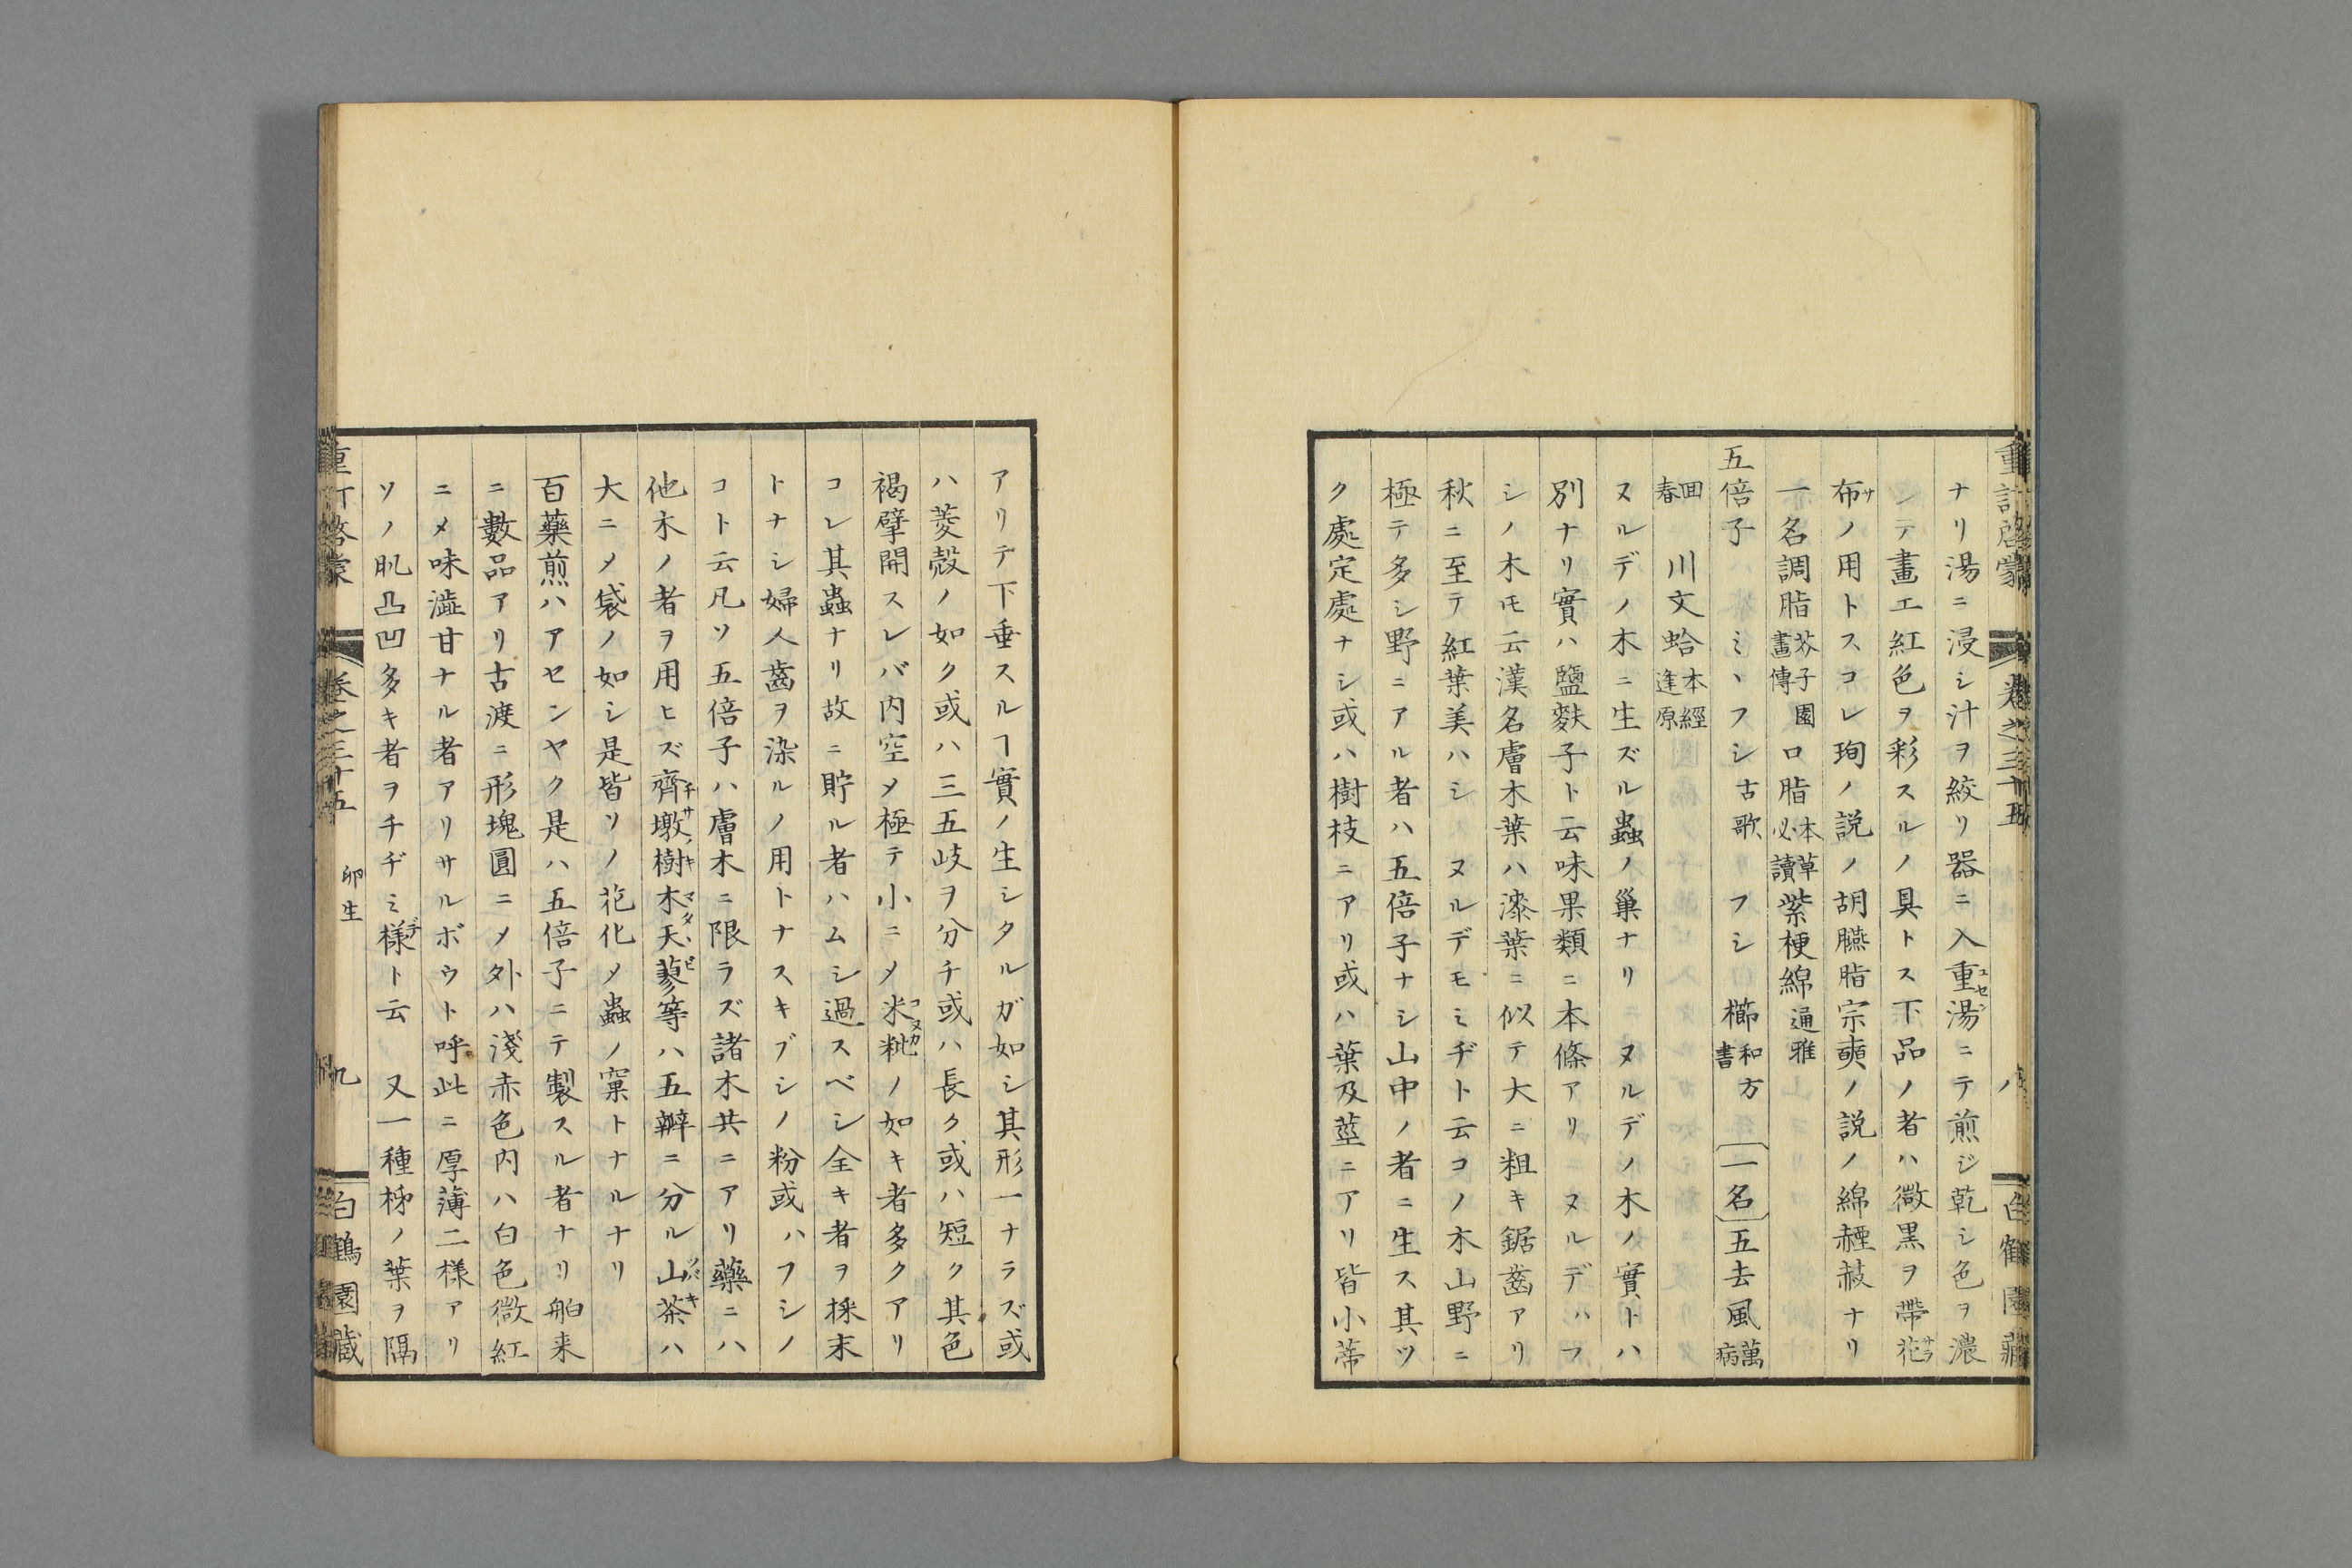 重訂啓蒙 卷之三十五 八 白鶴園藏
ナリ湯ニ浸シ汁ヲ絞リ器ニ入重湯ユセンニテ煎ジ乾シ色ヲ濃
シテ畫工紅色ヲ彩スルノ具トス下品ノ者ハ微黒ヲ帶花サラ
布サノ用トスコレ珣ノ説ノ胡臙脂宗奭ノ説ノ綿赬赦ナリ
一名調脂芥子園畫傳口脂本草必讀紫梗綿通雅
五倍子 ミヽフシ古歌 フシ 櫛和方書 〔一名〕五去風萬病
回春 川文蛤本經逢原
ヌルデノ木ニ生ズル蟲ノ巢ナリ ヌルデノ木ノ實トハ
別ナリ實ハ鹽麩子ト云味果類ニ本條アリ ヌルデハフ
シノ木モ云漢名膚木葉ハ漆葉ニ似テ大ニ粗キ鋸齒アリ
秋ニ至テ紅葉美ハシ ヌルデモミヂト云コノ木山野ニ
極テ多シ野ニアル者ハ五倍子ナシ山中ノ者ニ生ス其ツ
ク處定處ナシ或ハ樹枝ニアリ或ハ葉及莖ニアリ皆小蒂
アリテ下垂スルヿ實ノ生シタルガ如シ其形一ナラズ或
ハ菱殼ノ如ク或ハ三五歧ヲ分チ或ハ長ク或ハ短ク其色
褐擘開スレバ内空メ極テ小ニメ米粃コヌカノ如キ者多クアリ
コレ其蟲ナリ故ニ貯ル者ハムシ過スベシ全キ者ヲ採末
トナシ婦人齒ヲ染ルノ用トナスキブシノ粉或ハフシノ
コト云凡ソ五倍子ハ膚木ニ限ラズ諸木共ニアリ藥ニハ
他木ノ者ヲ用ヒズ齊墩樹チサノキ木天蓼マタヽビ等ハ五瓣ニ分ル山茶ツバキハ
大ニメ袋ノ如シ是皆ソノ花化メ蟲ノ窠トナルナリ
百藥煎ハアセンヤク是ハ五倍子ニテ製スル者ナリ舶来
ニ數品アリ古渡ニ形塊圓ニメ外ハ淺赤色内ハ白色微紅
ニメ味澁甘ナル者アリサルボウト呼此ニ厚薄二樣アリ
ソノ肌凸凹多キ者ヲチヂミ樣デト云 又一種梯ノ葉ヲ隔
重訂啓蒙 卷之三十五 卵生 九 白鶴園藏